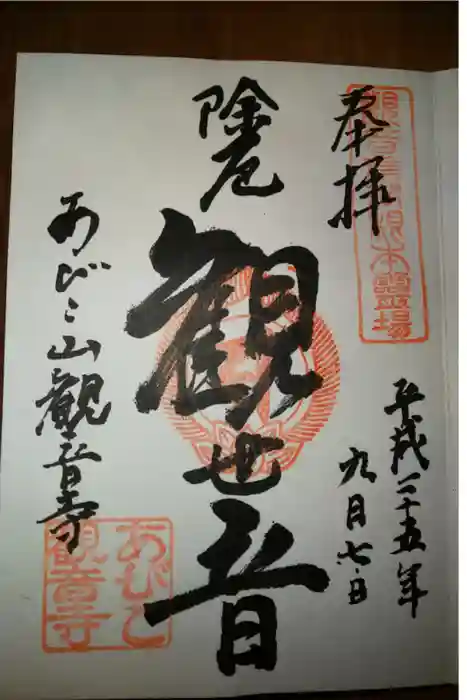 奉拝
平成二十五年
九月七日
除厄
観世音
あびこ山観音寺
あびこ
観音寺